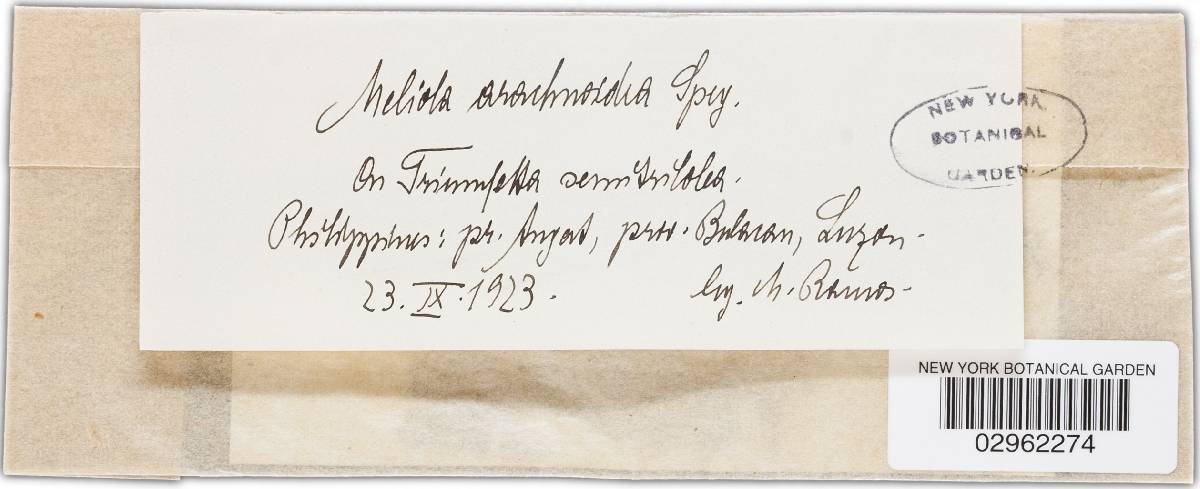 Meliola arachnoidea Speg.
On Triumfetta semitriloba.
Philippines: pr. Angat, prov. Bulacan, Luzon.
23. IX. 1923. leg. M. Ramos.
NEW YORK
BOTANICAL
GARDEN.
NEW YORK BOTANICAL GARDEN
02962274